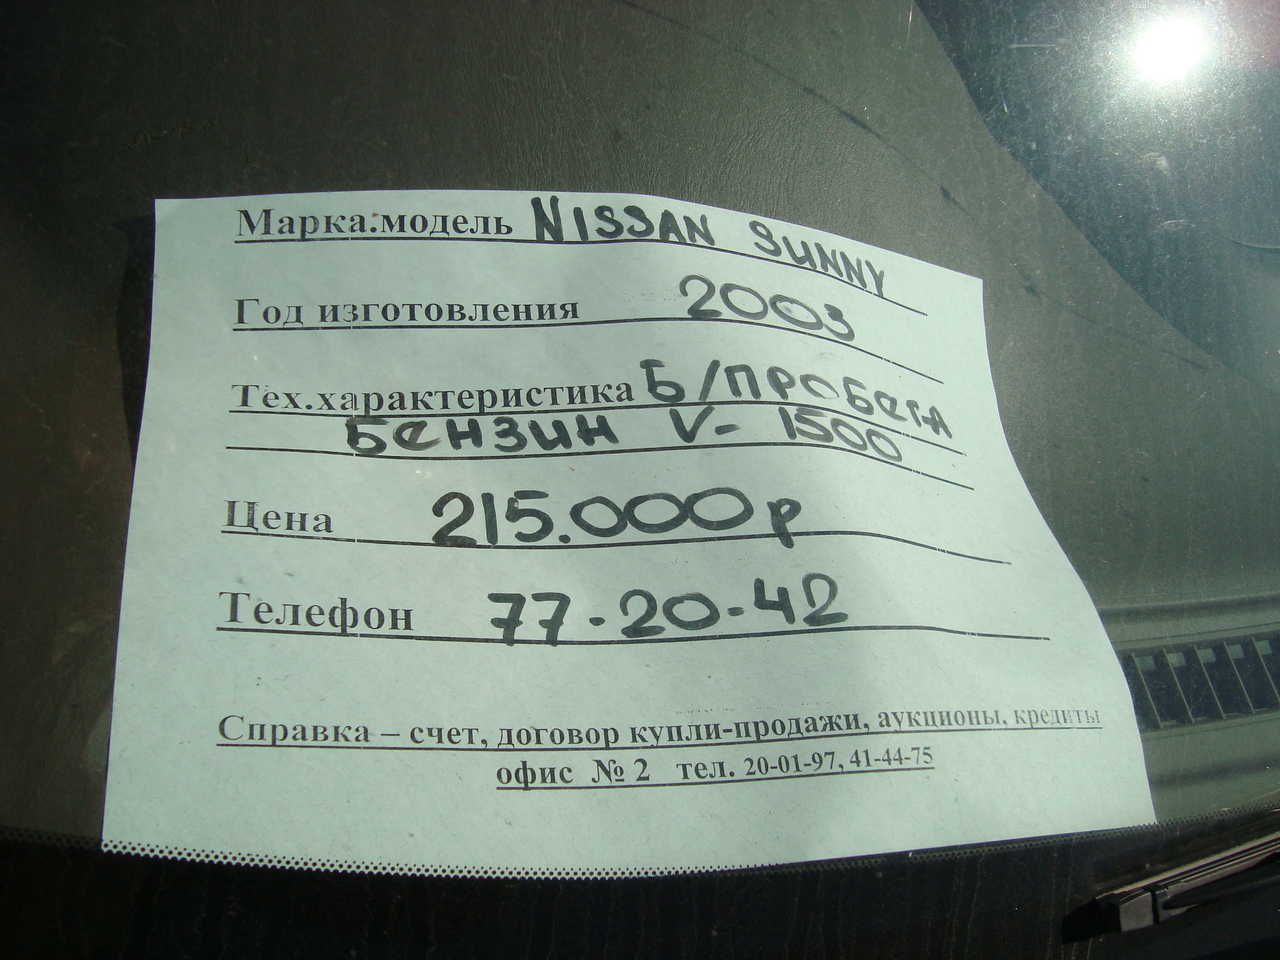 Марка.модель NISSAN SUNNY
Год изготовления 2003
Тех.характеристика Б/ПРОБЕГА
БЕНЗИН V- 1500
Цена 215.000р
Телефон 77-20-42
Справка – счет, договор купли-продажи, аукционы, кредиты
офис № 2 тел. 20-01-97, 41-44-75